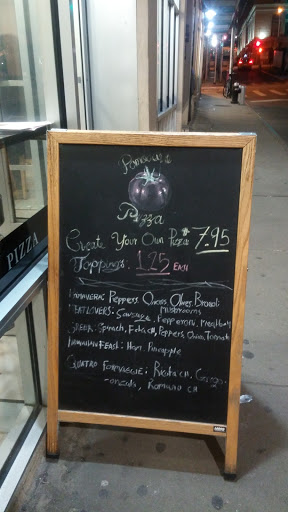 Pizza
Create Your Own Pizza $7.95
Toppings. 1.25 Each
Peppers, Onions, Olives, Broccoli
mushrooms
Meatlovers: Sausage, Pepperoni, Meatballs
Greek: Spinach, Feta CH, Peppers, Onion, Tomato
Hawaiian Feast: Ham, Pineapple
Quatro Formaggie: Ricotta CH, Gorgo-
-onzola, Romano CH
PIZZA